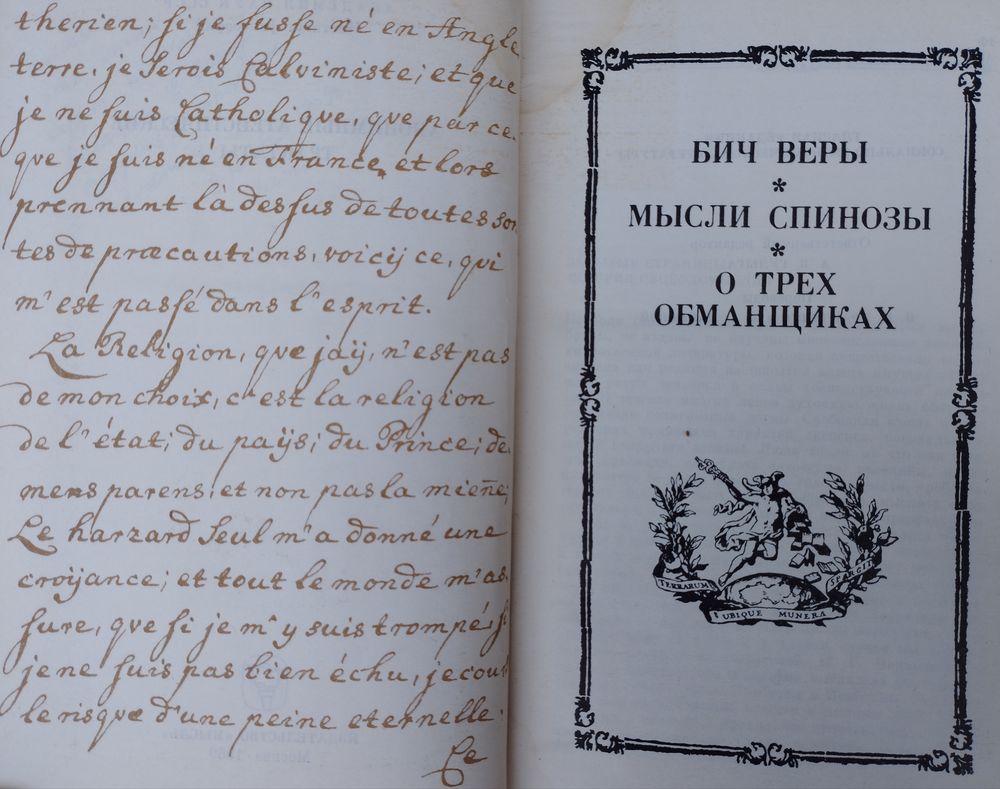 therien; si je fusse né en Angle
terre, je serois Calviniste; et que
je ne suis Catholique, que par ce
que je suis né en France, et lors
prennant là dessus de toutes sor
tes de præcautions, voicij ce, qui
m'est passé dans l'esprit.
La Religion, que jaÿ, n'est pas
de mon choix, c'est la religion
de l'état; du paÿs; du Prince; de
mens parens, et non pas la mieñe;
Le harzard seul m'a donné une
croÿance; et tout le monde m'as
sure, que si je m'y suis trompé, si
je ne suis pas bien échu, je cour
le risque d'une peine eternelle.
Ce
БИЧ ВЕРЫ
*
МЫСЛИ СПИНОЗЫ
*
О ТРЕХ
ОБМАНЩИКАХ
TERRARUM
UBIQUE MUNERA
SPARGIT